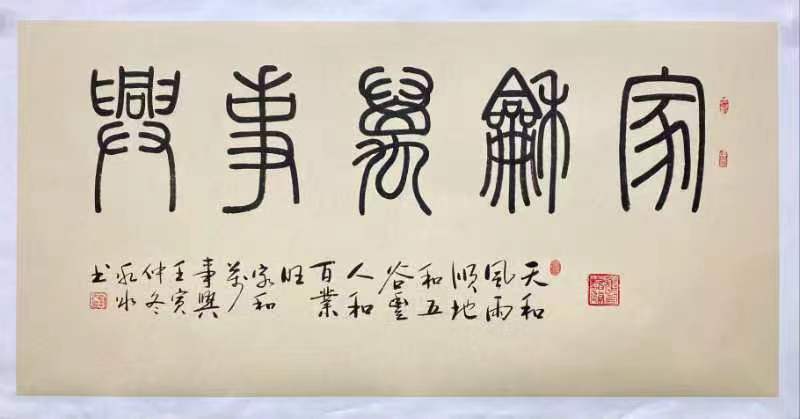 家龢萬事興
天和
風雨
順地
和五
谷豐
人和
百業
旺
家和
萬
事興
壬寅
仲冬
书